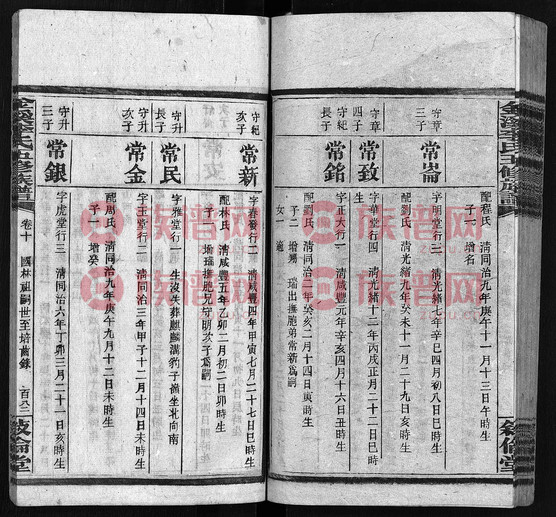 配程氏 清同治九年庚午十一月十三日午時生
子一 增名
守章
三子
常崙
字明堂行三 清光緒七年辛巳四月初八日巳時生
配劉氏 清光緒九年癸未十一月二十九日亥時生
守章
四子
常致
字華堂行四 清光緒十二年丙戌正月二十二日巳時
生
守紀
長子
常銘
字正大行一 清咸豐元年辛亥四月十六日丑時生
配
氏 清同治二年癸亥二月十四日寅時生
子二 增
瑞出撫胞弟常新為嗣
女一
守紀
次子
常新
字春
行二 清咸豐四年甲寅七月二十七日巳時生
配林氏 清咸豐五年乙卯二月初二日卯時生
增瑞撫胞兄
次子為嗣
守升
長子
常民
字雅堂行一 生沒失葬麒麟溝豹子
坐北向南
守升
次子
常金
字玉堂行二 清同治三年甲子十二月十四日未時生
配周氏 清同治九年庚午九月十二日未時生
子一 增癸
守升
三子
常銀
字虎堂行三 清同治六年丁卯三月二十一日亥時生
卷十 國林祖嗣世至培
錄 一百八二
敘倫堂
族譜网